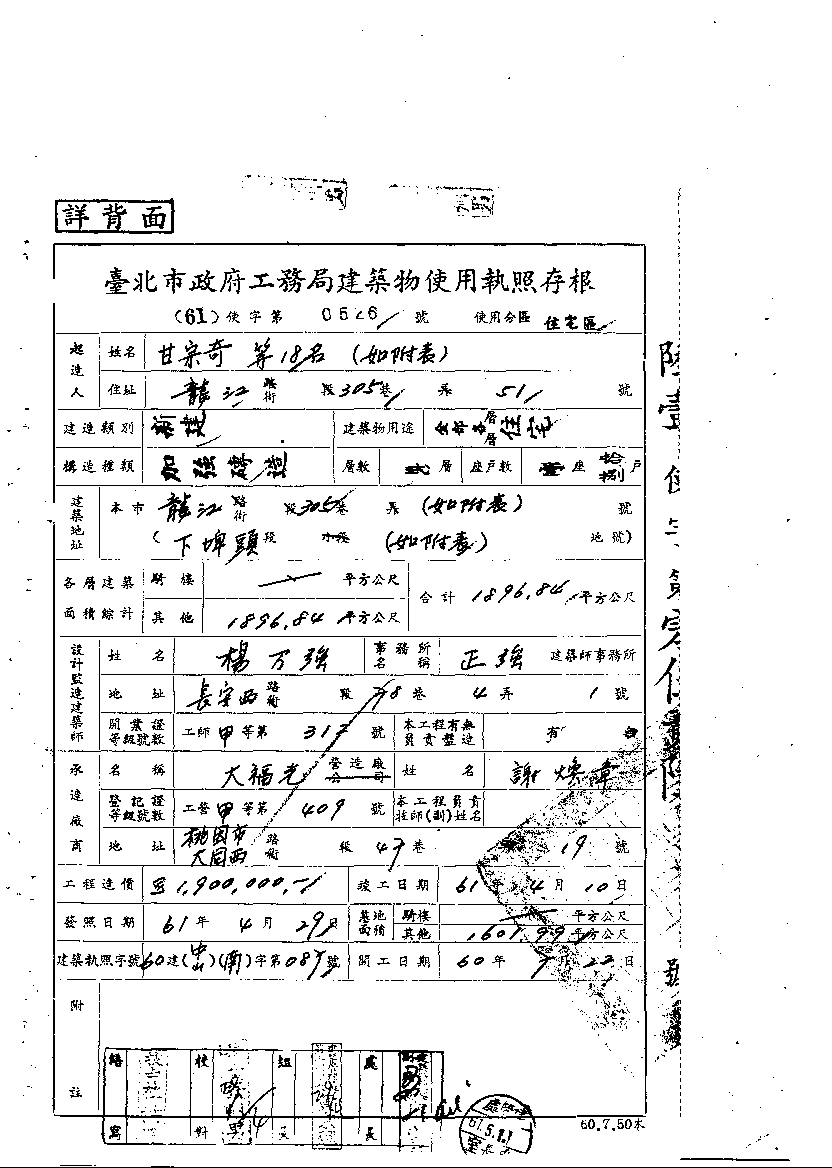 詳背面
臺北市政府工務局建築物使用執照存根
(61)使字第 0526 號 使用分區 住宅區
起造人 姓名 甘宗奇 等18名 (如附表)
住址 龍江 路街 段 305 巷 弄 51 號
建造類別 新建 建築物用途 全部各層層住宅
構造種類 加強磚造 層數 層 座戶數 壹 座 拾捌 戶
建築地址 本市 龍江 路街 段 305 巷 弄 (如附表) 號
(下埤頭 段 小段 (如附表) 地號)
各層建築面積綜計 騎樓 平方公尺 合計 1896.84 平方公尺
其他 1896.84 平方公尺
設計監造建築師 姓名 楊万強 事務所名稱 正強 建築師事務所
地址 長安西 路街 段 78 巷 4 弄 1 號
開業證等級號數 工師 甲 等第 317 號 本工程有無負責監造 有
承造廠商 名稱 大福光 營造廠公司 姓名 謝煥諱
登記證等級號數 工營 甲 等第 409 號 本工程負責主任技師(副)姓名
地址 桃園市大同西 路街 段 47 巷 19 號
工程造價 1,900,000 竣工日期 61年 4月 10日
發照日期 61年 4月 29日 基地面積 騎樓 平方公尺
其他 1601.99 平方公尺
建築執照字號 60建(中山)(南)字第087號 開工日期 60年 7月 22日
附註
繕寫 校對 組長 處長
60.7.50本